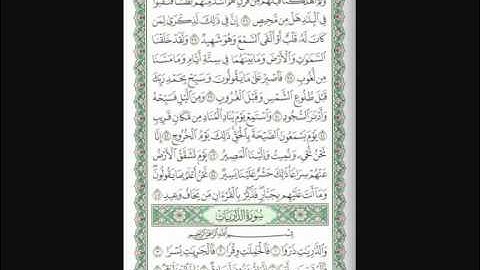 وَكَمْ أَهْلَكْنَا قَبْلَهُم مِّن قَرْنٍ هُمْ أَشَدُّ مِنْهُم بَطْشًا فَنَقَّبُوا
فِي الْبِلَادِ هَلْ مِن مَّحِيصٍ ٣٦ إِنَّ فِي ذَٰلِكَ لَذِكْرَىٰ لِمَن
كَانَ لَهُ قَلْبٌ أَوْ أَلْقَى السَّمْعَ وَهُوَ شَهِيدٌ ٣٧ وَلَقَدْ خَلَقْنَا
السَّمَاوَاتِ وَالْأَرْضَ وَمَا بَيْنَهُمَا فِي سِتَّةِ أَيَّامٍ وَمَا مَسَّنَا
مِن لُّغُوبٍ ٣٨ فَاصْبِرْ عَلَىٰ مَا يَقُولُونَ وَسَبِّحْ بِحَمْدِ رَبِّكَ
قَبْلَ طُلُوعِ الشَّمْسِ وَقَبْلَ الْغُرُوبِ ٣٩ وَمِنَ اللَّيْلِ فَسَبِّحْهُ
وَأَدْبَارَ السُّجُودِ ٤٠ وَاسْتَمِعْ يَوْمَ يُنَادِ الْمُنَادِ مِن مَّكَانٍ قَرِيبٍ
٤١ يَوْمَ يَسْمَعُونَ الصَّيْحَةَ بِالْحَقِّ ذَٰلِكَ يَوْمُ الْخُرُوجِ ٤٢ إِنَّا
نَحْنُ نُحْيِي وَنُمِيتُ وَإِلَيْنَا الْمَصِيرُ ٤٣ يَوْمَ تَشَقَّقُ الْأَرْضُ
عَنْهُمْ سِرَاعًا ذَٰلِكَ حَشْرٌ عَلَيْنَا يَسِيرٌ ٤٤ نَّحْنُ أَعْلَمُ بِمَا يَقُولُونَ
وَمَا أَنتَ عَلَيْهِم بِجَبَّارٍ فَذَكِّرْ بِالْقُرْآنِ مَن يَخَافُ وَعِيدِ ٤٥
سُورَةُ الذَّارِيَاتِ
بِسْمِ اللَّهِ الرَّحْمَٰنِ الرَّحِيمِ
وَالذَّارِيَاتِ ذَرْوًا ١ فَالْحَامِلَاتِ وِقْرًا ٢ فَالْجَارِيَاتِ يُسْرًا ٣